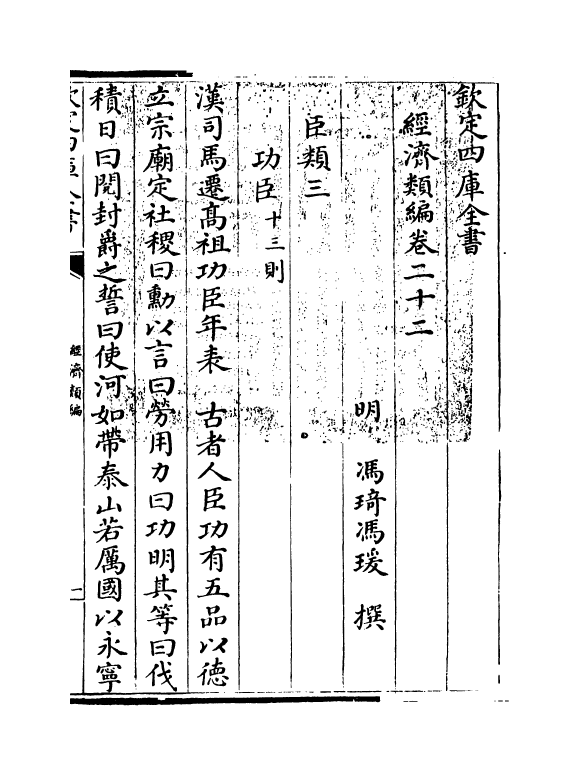 欽定四庫全書
經濟類編卷二十二
明 馮琦馮瑗 撰
臣類三
功臣十三則
漢司馬遷高祖功臣年表 古者人臣功有五品以德
立宗廟定社稷曰勳以言曰勞用力曰功明其等曰伐
積日曰閱封爵之誓曰使河如帶泰山若厲國以永寧
欽定四庫全書
經濟類編